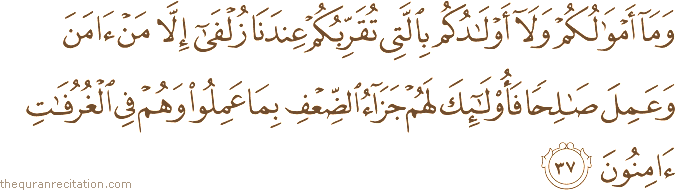 وَمَآ أَمْوَٰلُكُمْ وَلَآ أَوْلَٰدُكُم بِٱلَّتِى تُقَرِّبُكُمْ عِندَنَا زُلْفَىٰٓ إِلَّا مَنْ ءَامَنَ
وَعَمِلَ صَٰلِحًا فَأُو۟لَٰٓئِكَ لَهُمْ جَزَآءُ ٱلضِّعْفِ بِمَا عَمِلُوا۟ وَهُمْ فِى ٱلْغُرُفَٰتِ
ءَامِنُونَ ٣٧
thequranrecitation.com